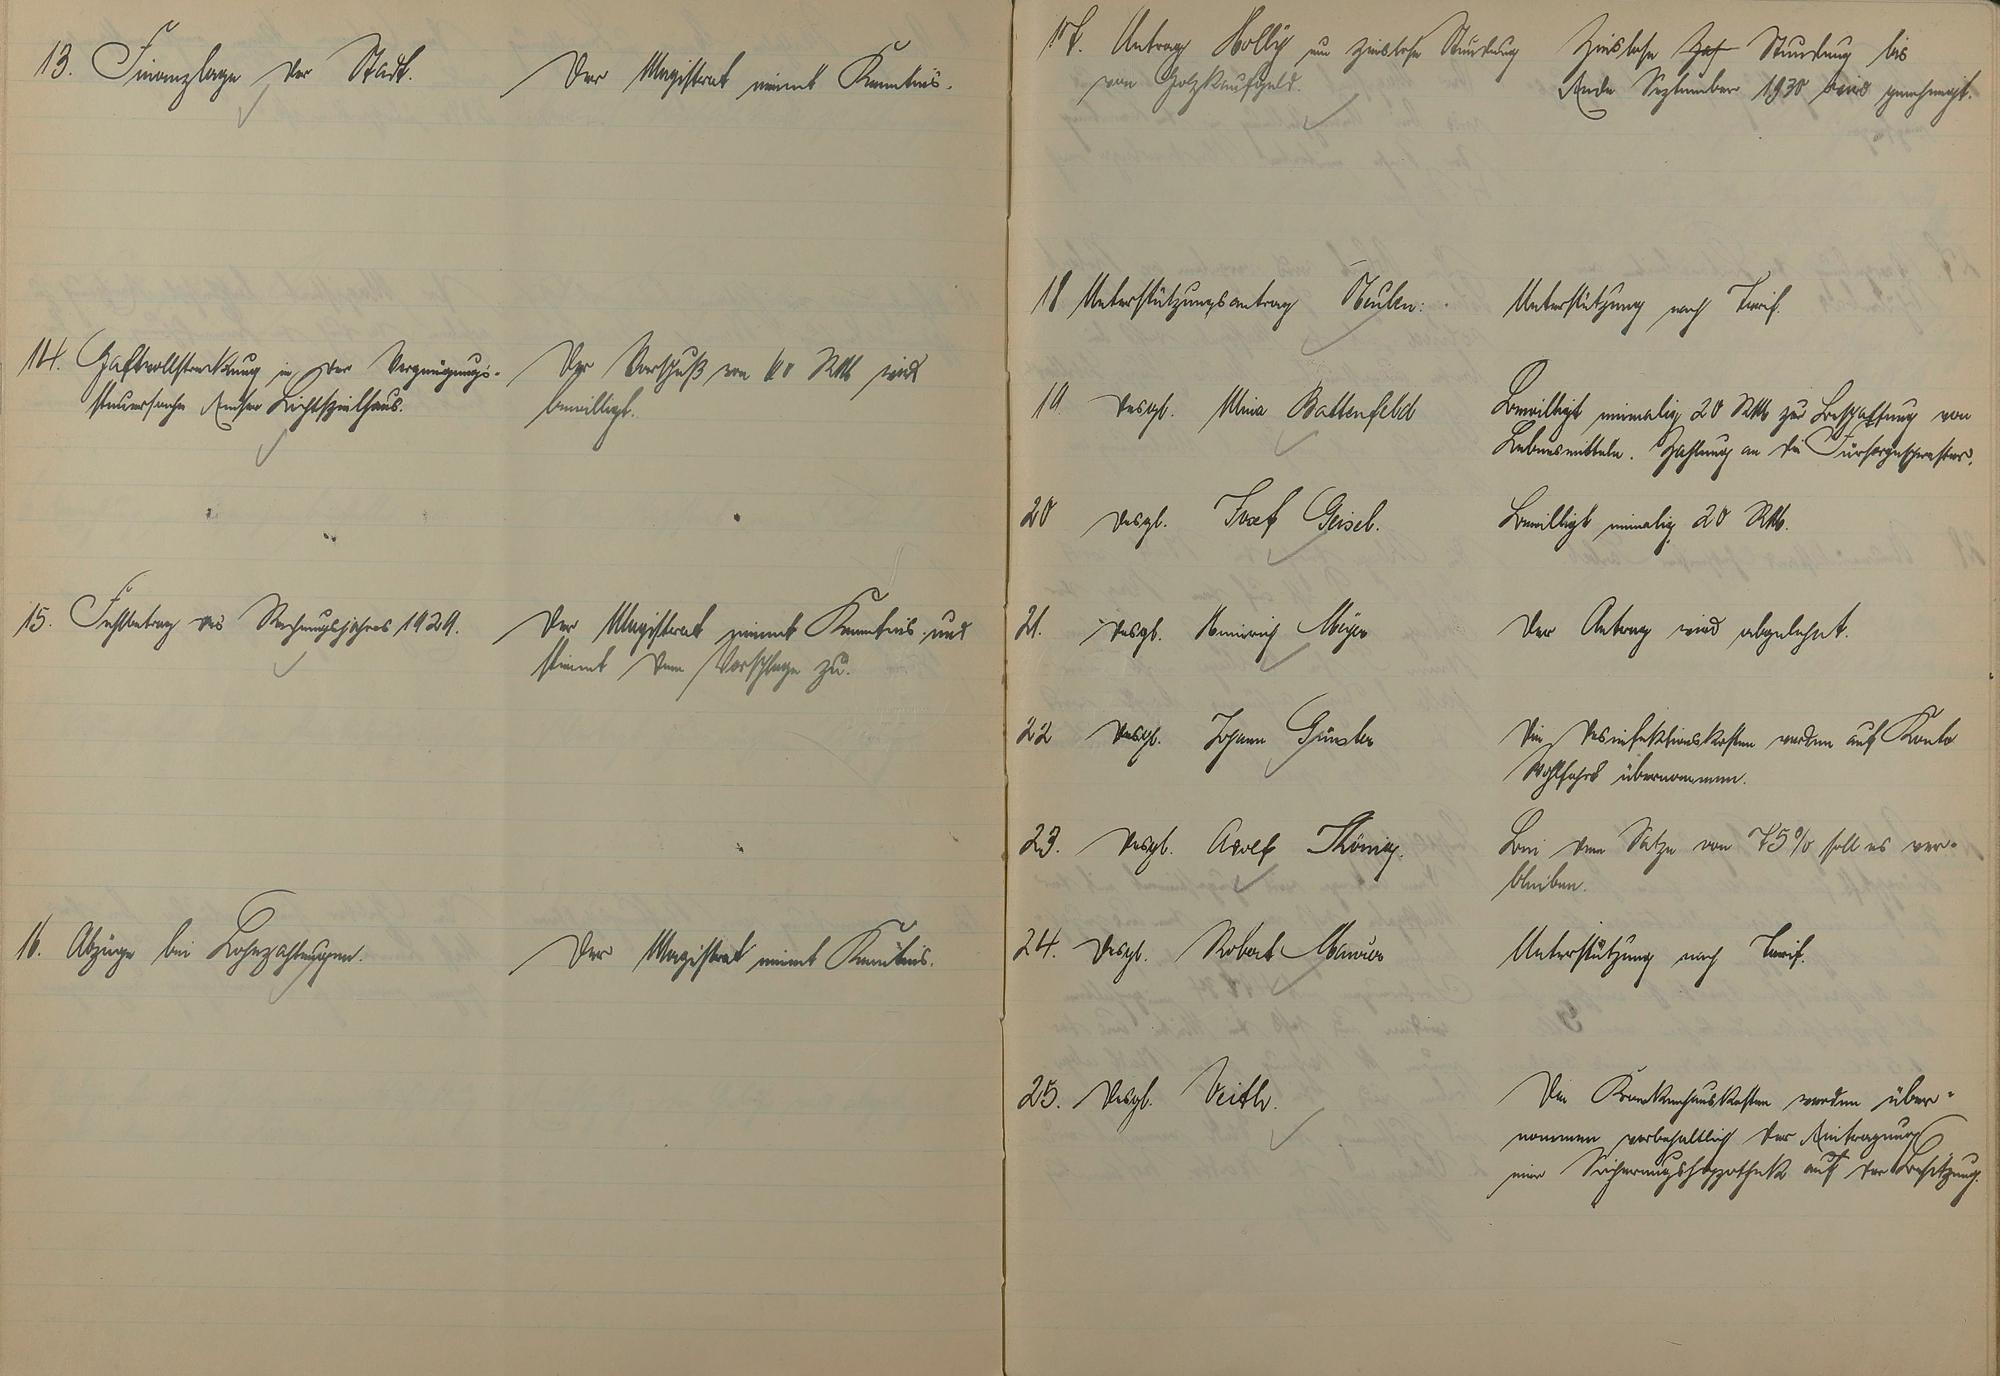 13. Finanzlage der Stadt.
Der Magistrat nimmt Kenntnis.
14. Haftvollstreckung in der Vergnügungs-
steuersache Emser Lichtspielhaus.
Der Vorschuß von 60 RM wird
bewilligt.
15. Fehlbetrag des Rechnungsjahres 1929.
Der Magistrat nimmt Kenntnis und
stimmt dem Vorschlage zu.
16. Abzüge bei Lohnzahlungen.
Der Magistrat nimmt Kenntnis.
17. Antrag Holly um zinslose Stundung
von Holzkaufgeld.
Zinslose Stundung bis
Ende September 1930 wird genehmigt.
18 Unterstützungsantrag
Unterstützung nach Tarif.
19. desgl. Mina Battenfeld
Bewilligt einmalig 20 RM zur Beschaffung von
Lebensmitteln. Zahlung an die Fürsorgeschwester.
20 desgl. Josef Geisel.
Bewilligt einmalig 20 RM.
21. desgl. Heinrich Meyer
Der Antrag wird abgelehnt.
22 desgl. Johann Günster
Die Desinfektionskosten werden auf Konto
Wohlfahrt übernommen.
23. desgl. Adolf Thönig.
Bei dem Satze von 75% soll es ver-
bleiben.
24. desgl. Robert Maurer
Unterstützung nach Tarif.
25. desgl. Veith.
Die Krankenhauskosten werden über-
nommen vorbehaltlich der Eintragung
einer Sicherungshypothek auf der Besitzung.